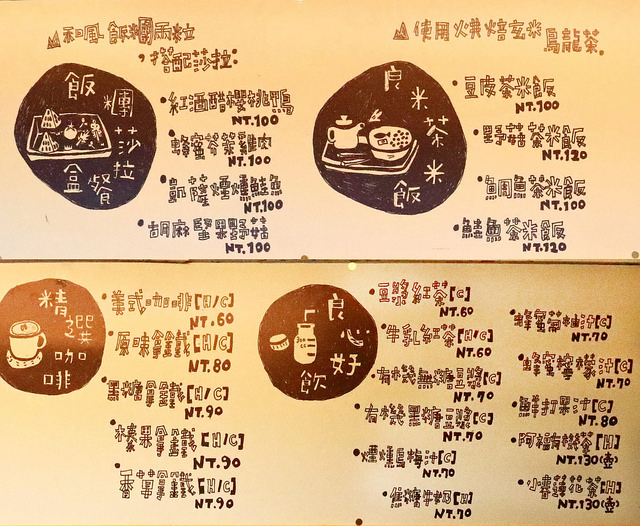 和風飯糰兩粒
，搭配莎拉：
飯糰莎拉餐盒
紅酒醋櫻桃鴨
NT.100
蜂蜜芥茉雞肉
NT.100
凱薩煙燻鮭魚
NT.100
胡麻堅果野菇
NT.100
使用烘焙玄米烏龍茶。
良米茶米飯
豆皮茶米飯
NT.100
野菇茶米飯
NT.120
鯛魚茶米飯
NT.100
鮭魚茶米飯
NT.120
精選咖啡
美式咖啡[H/C]
NT.60
原味拿鐵[H/C]
NT.80
黑糖拿鐵[H/C]
NT.90
榛果拿鐵[H/C]
NT.90
香草拿鐵[H/C]
NT.90
良心好飲
豆漿紅茶[C]
NT.60
牛乳紅茶[H/C]
NT.60
有機無糖豆漿[C]
NT.70
有機黑糖豆漿[C]
NT.70
煙燻烏梅汁[C]
NT.70
焦糖牛奶[H]
NT.70
蜂蜜菊柚汁[C]
NT.70
蜂蜜檸檬汁[C]
NT.70
鮮打果汁[C]
NT.80
阿裕有機茶[H]
NT.130(壺)
小書蓮花茶[H]
NT.130(壺)